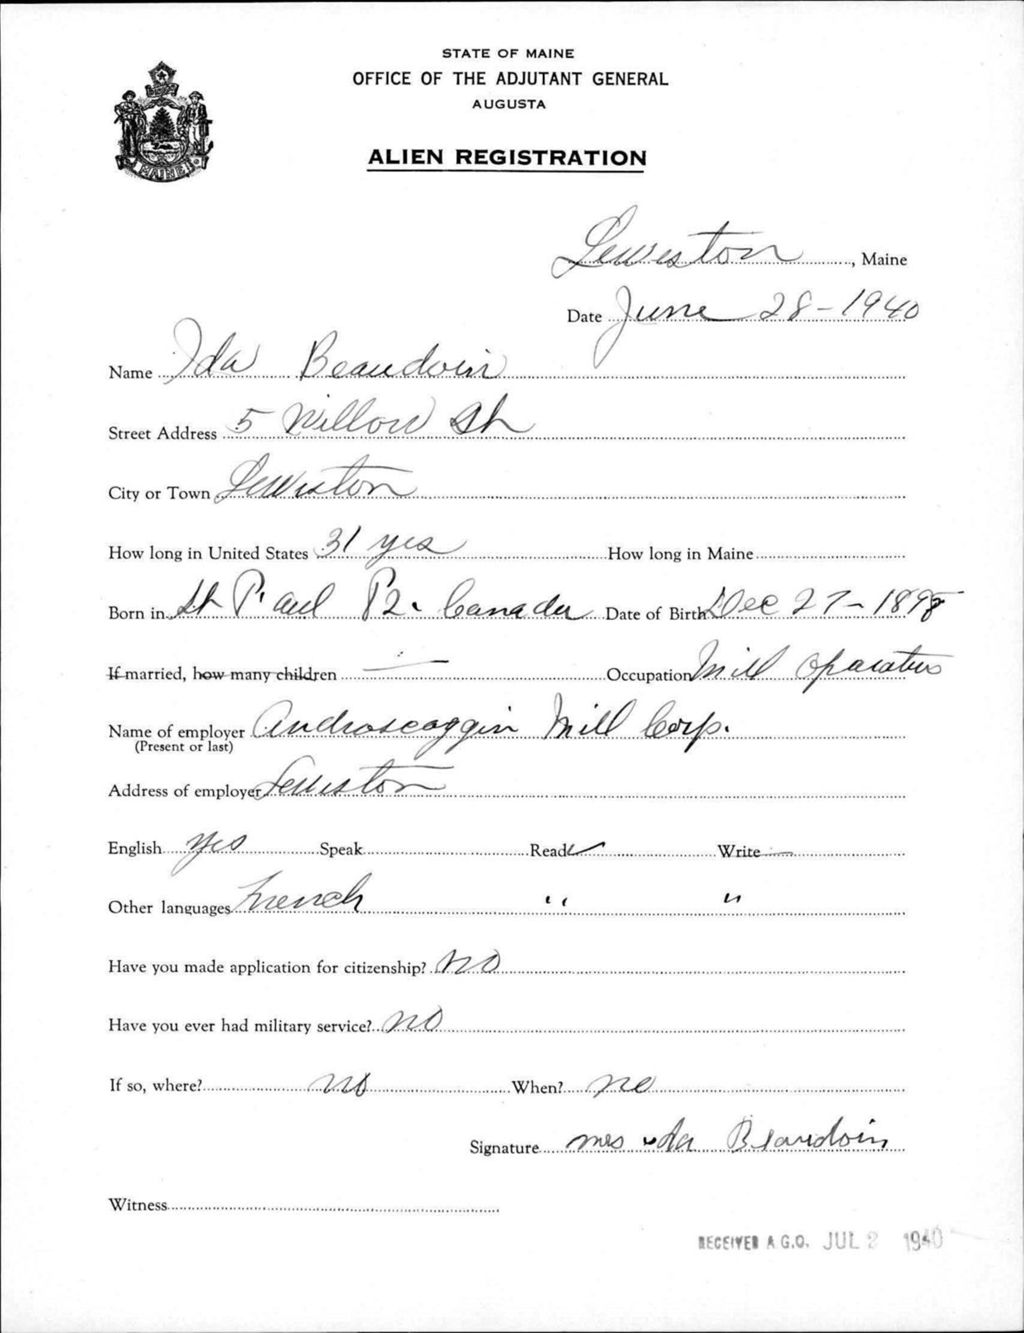 STATE OF MAINE
OFFICE OF THE ADJUTANT GENERAL
AUGUSTA
ALIEN REGISTRATION
MAINE
Lewiston, Maine
Date June 28-1940
Name Ida Beaudoin
Street Address 5 Willow St
City or Town Lewiston
How long in United States 31 yrs How long in Maine
Born in St Paul P2. Canada Date of Birth Dec 27-1898
If married, how many children — Occupation Mill Operator
Name of employer Androscoggin Mill Corp.
(Present or last)
Address of employer Lewiston
English yes Speak Read ✓ Write —
Other languages French " "
Have you made application for citizenship? No
Have you ever had military service? no
If so, where? no When? no
Signature mrs Ida Beaudoin
Witness
RECEIVED A.G.O. JUL 2 1940